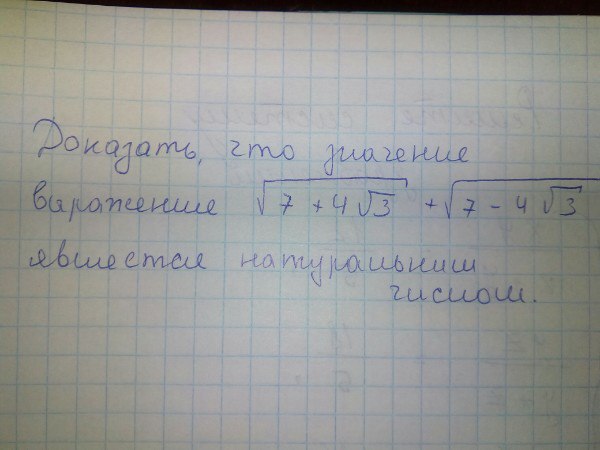 Доказать, что значение
выражение √(7 + 4√3) + √(7 - 4√3)
является натуральним
числом.